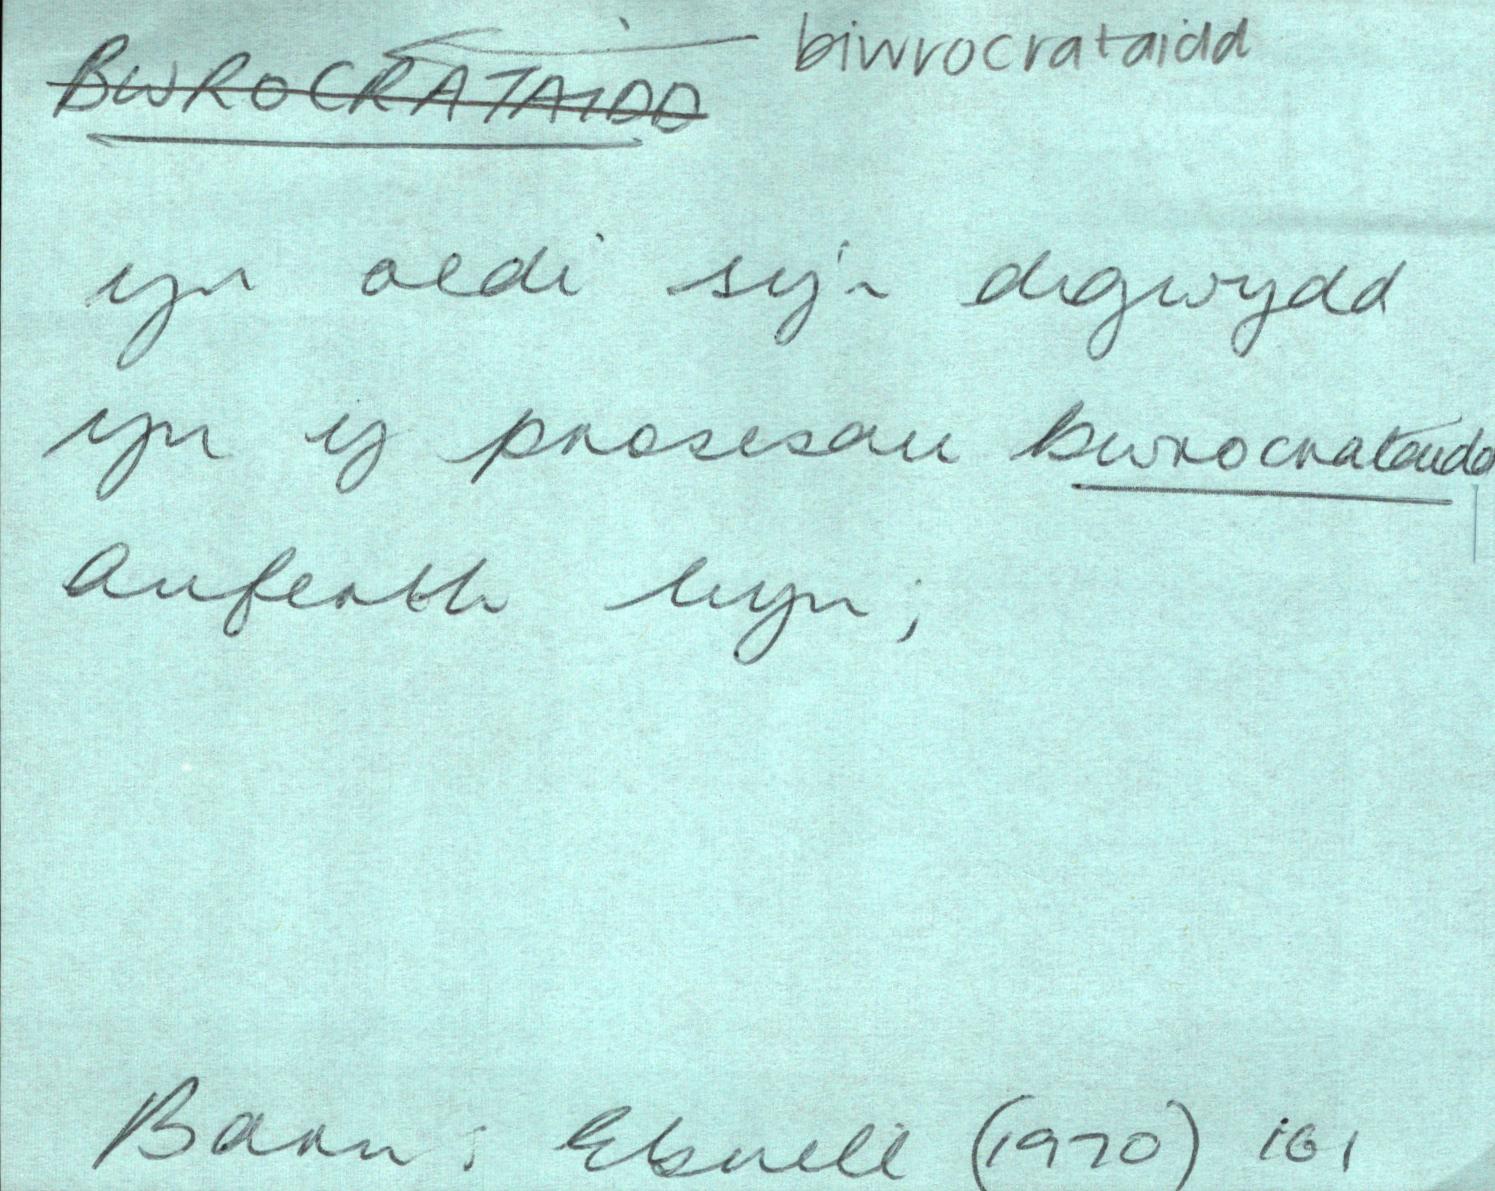 BWROCRATAIDD biwrocrataidd
yn oedi sy'n digwydd
yn y prosesau bwrocrataidd
anferth hyn;
Barn: Ebrill (1970) 161